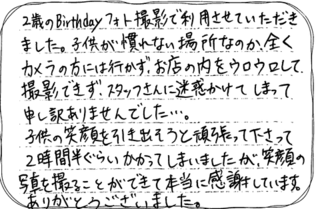 2歳のBirthdayフォト撮影で利用させていただき
ました。子供が慣れない場所なのか、全く
カメラの方には行かず、お店の内をウロウロして、
撮影できず、スタッフさんに迷惑かけてしまって
申し訳ありませんでした…。
子供の笑顔を引き出そうと頑張って下さって
2時間半ぐらいかかってしまいましたが、笑顔の
写真を撮ることができて本当に感謝しています。
ありがとうございました。